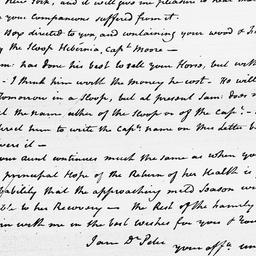 New York, and it will give me pleasure to hear
your Companions suffered from it.
Box directed to you, and containing your wood &
by the Sloop Hibernia, Capt. Moore —
has done his best to sell your Horse, but
- I think him worth the money he cost. He will
Tomorrow in a Sloop, but at present Sam: does
the name either of the Sloop or of the Capt: -
him to write the Capt.s name on this Letter
it —
your aunt continues much the same as when
principal Hope of the Return of her Health is
that the approaching mild Season
to her Recovery — The Rest of the Family
with me in the best wishes for you &
I am Dr. Peter
your afft.